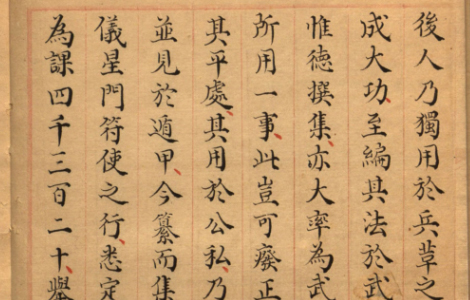 後人乃獨用於兵革之
成大功至編其法於武
惟德撰集亦大率為武
所用一事此豈可廢正
其平處其用於公私乃
並見於遁甲今纂而集
儀星門符使之行悉定
為課四千三百二十舉